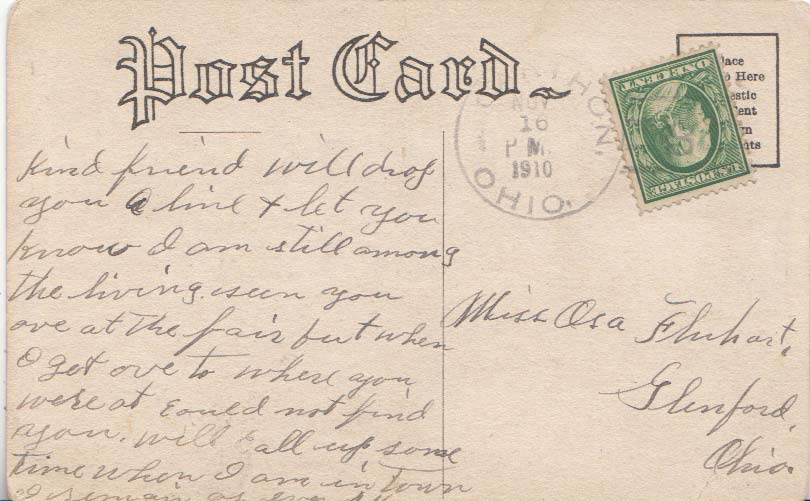 Post Card
Place
Here
Domestic
Cent
THORN
NOV
16
P M.
1910
OHIO.
ONE CENT
U.S. POSTAGE
Kind friend will drop
you a line & let you
know I am still among
the living. seen you
ove at the fair but when
I get ove to where you
were at could not find
you. will call up some
time when I am in town
I remain as ever
Miss Osa Fluhart,
Glenford,
Ohio.